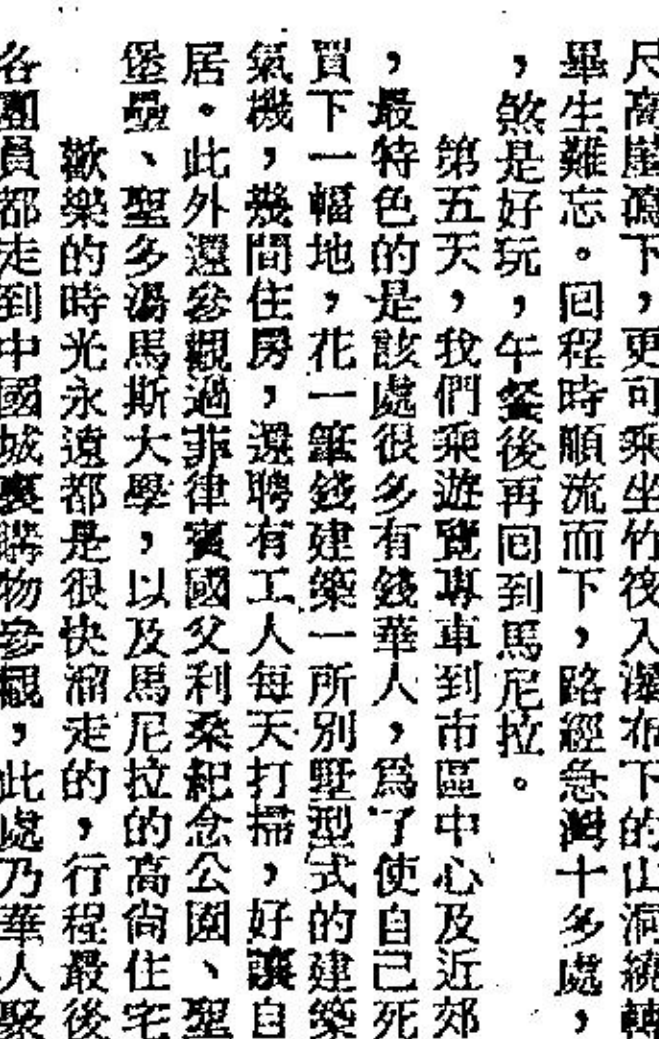 尺高崖瀉下，更可乘坐竹筏入瀑布下的山洞繞轉
畢生難忘。回程時順流而下，路經急灣十多處，
，煞是好玩，午餐後再回到馬尼拉。
第五天，我們乘遊覽專車到市區中心及近郊
，最特色的是該處很多有錢華人，爲了使自己死
買下一幅地，花一筆錢建築一所別墅型式的建築
氣機，幾間住房，還聘有工人每天打掃，好讓自
居。此外還參觀過菲律賓國父利桑紀念公園、聖
堡壘、聖多湯馬斯大學，以及馬尼拉的高尚住宅
歡樂的時光永遠都是很快溜走的，行程最後
各團員都走到中國城裏購物參觀，此處乃華人聚